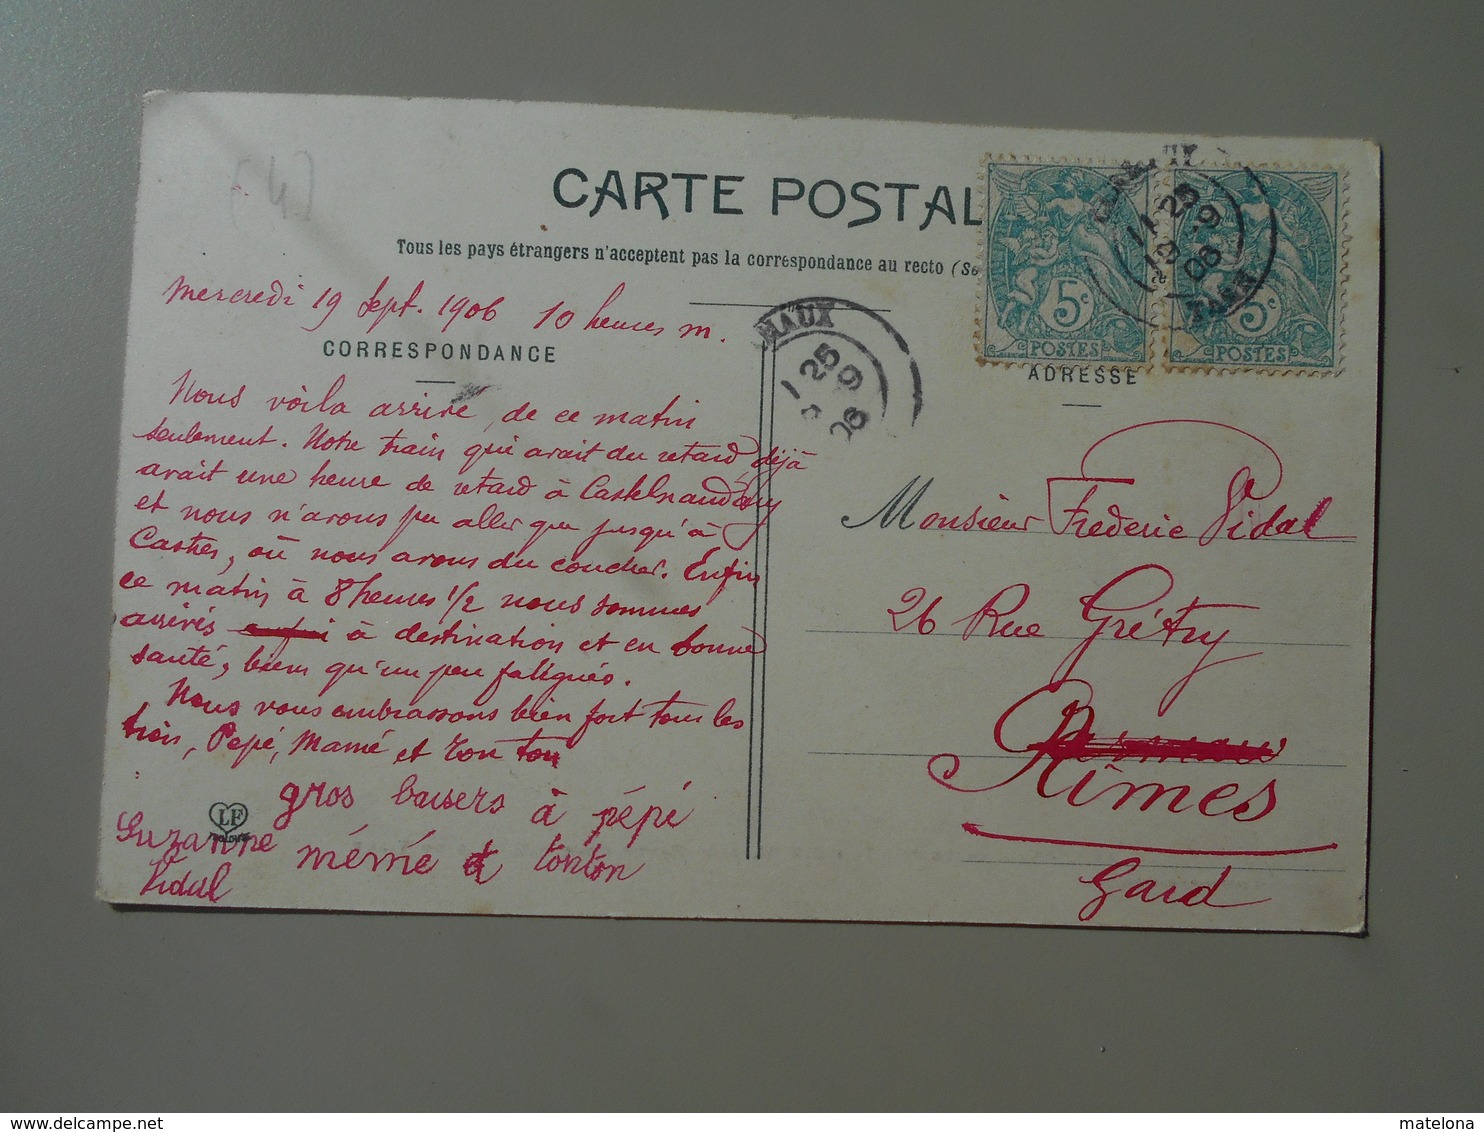 (4)
CARTE POSTAL
Tous les pays étrangers n'acceptent pas la correspondance au recto (Se
Mercredi 19 Sept. 1906 10 heures m.
CORRESPONDANCE
Nous voila arrivé, de ce matin
seulement. Notre train qui avait du retard, déjà
avait une heure de retard à Castelnaudary
et nous n'avons pu aller que jusqu'à
Castres, où nous avons du coucher. Enfin
ce matin à 8 heures 1/2 nous sommes
arrivés à destination et en bonne
santé, bien qu'un peu fatigués.
Nous vous embrassons bien fort tous les
trois, Pépé, Mamé et Ton ton
gros baisers à pépé
Suzanne mémé et tonton
Vidal
LF
MAUX
1 25
9
06
11 25
19 -9
06
TARN
5c
POSTES
5c
POSTES
ADRESSE
Monsieur Frederic Vidal
26 Rue Grétry
Nîmes
Gard
matelona